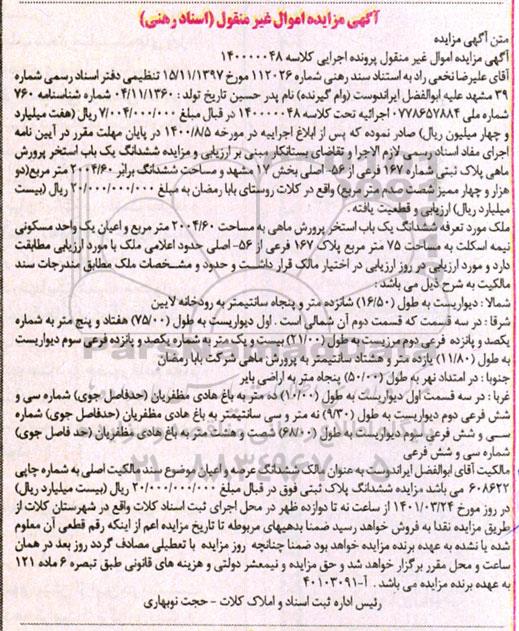 آگهی مزایده اموال غیر منقول (اسناد رهنی)
متن آگهی مزایده
آگهی مزایده اموال غیر منقول پرونده اجرایی کلاسه ۱۴۰۰۰۰۰۴۸
آقای علیرضا نخعی راد به استناد سند رهنی شماره ۱۱۲۰۲۶ مورخ ۱۵/۱۱/۱۳۹۷ تنظیمی دفتر اسناد رسمی شماره
۳۹ مشهد علیه ابوالفضل ایراندوست (وام گیرنده) نام پدر حسین تاریخ تولد : ۰۴/۱۱/۱۳۶۰ شماره شناسنامه ۷۶۰
شماره ملی ۰۷۷۸۶۵۷۸۸۴ اجرائیه تحت کلاسه ۱۴۰۰۰۰۰۴۸ در قبال مبلغ ۷/۰۰۴/۰۰۰/۰۰۰ ریال (هفت میلیارد
و چهار میلیون ریال) صادر نموده که پس از ابلاغ اجراییه در مورخه ۱۴۰۰/۸/۵ در پایان مهلت مقرر در آیین نامه
اجرای مفاد اسناد رسمی لازم الاجرا و تقاضای بستانکار مبنی بر ارزیابی و مزایده ششدانگ یک باب استخر پرورش
ماهی پلاک ثبتی شماره ۱۶۷ فرعی از ۵۶- اصلی بخش ۱۷ مشهد و مساحت ششدانگ برابر ۲۰۰۴/۶۰ متر مربع(دو
هزار و چهار ممیز شصت صدم متر مربع) واقع در کلات روستای بابا رمضان به مبلغ ۲۰/۰۰۰/۰۰۰/۰۰۰ ریال (بیست
میلیارد ریال) ارزیابی و قطعیت یافته .
ملک مورد تعرفه ششدانگ یک باب استخر پرورش ماهی به مساحت ۲۰۰۴/۶۰ متر مربع و اعیان یک واحد مسکونی
نیمه اسکلت به مساحت ۷۵ متر مربع پلاک ۱۶۷ فرعی از ۵۶- اصلی حدود اعلامی ملک با مورد ارزیابی مطابقت
دارد و مورد ارزیابی در روز ارزیابی در اختیار مالک قرار داشت و حدود و مشخصات ملک مطابق مندرجات سند
مالکیت به شرح ذیل می باشد :
شمالا : دیواریست به طول (۱۶/۵۰) شانزده متر و پنجاه سانتیمتر به رودخانه لایین
شرقا : در سه قسمت که قسمت دوم آن شمالی است . اول دیواریست به طول (۷۵/۰۰) هفتاد و پنج متر به شماره
یکصد و پانزده فرعی دوم مرزیست به طول (۲۱/۰۰) بیست و یک متر به شماره یکصد و پانزده فرعی سوم دیواریست
به طول (۱۱/۸۰) یازده متر و هشتاد سانتیمتر به پرورش ماهی شرکت بابا رمضان
جنوبا : در امتداد نهر به طول (۵۰/۰۰) پنجاه متر به اراضی بایر
غربا : در سه قسمت اول دیواریست به طول (۱۰/۰۰) ده متر به باغ هادی مظفریان (حدفاصل جوی) شماره سی و
شش فرعی دوم دیواریست به طول (۹/۳۰) نه متر و سی سانتیمتر به باغ هادی مظفریان (حدفاصل جوی) شماره
سی و شش فرعی سوم دیواریست به طول (۶۸/۰۰) شصت و هشت متر به باغ هادی مظفریان (حد فاصل جوی)
شماره سی و شش فرعی
مالکیت آقای ابوالفضل ایراندوست به عنوان مالک ششدانگ عرصه و اعیان موضوع سند مالکیت اصلی به شماره چاپی
۶۰۸۶۲۲ می باشد مزایده ششدانگ پلاک ثبتی فوق در قبال مبلغ ۲۰/۰۰۰/۰۰۰/۰۰۰ ریال (بیست میلیارد ریال)
در روز مورخ ۱۴۰۱/۰۳/۲۴ از ساعت نه تا دوازده ظهر در محل اجرای ثبت اسناد کلات واقع در شهرستان کلات از
طریق مزایده نقدا به فروش خواهد رسید ضمنا بدهیهای مربوطه تا تاریخ مزایده اعم از اینکه رقم قطعی آن معلوم
شده یا نشده به عهده برنده مزایده خواهد بود ضمنا چنانچه روز مزایده با تعطیلی مصادف گردد روز بعد در همان
ساعت و محل مقرر برگزار خواهد شد و حق مزایده و نیمعشر دولتی و هزینه های قانونی طبق تبصره ۶ ماده ۱۲۱
به عهده برنده مزایده می باشد . آ-۴۰۱۰۳۰۹۱
رئیس اداره ثبت اسناد و املاک کلات - حجت نوبهاری